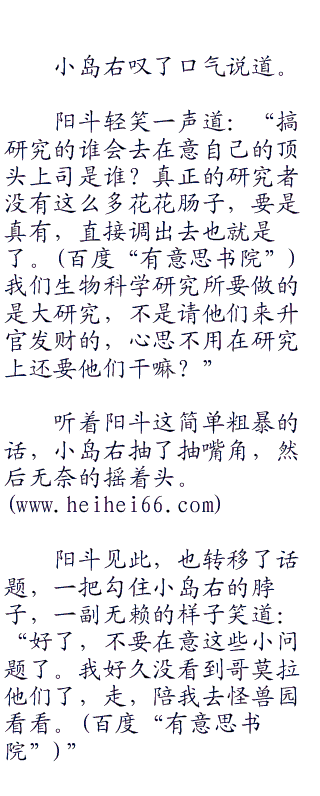 小岛右叹了口气说道。
阳斗轻笑一声道：“搞
研究的谁会去在意自己的顶
头上司是谁？真正的研究者
没有这么多花花肠子，要是
真有，直接调出去也就是
了。(百度“有意思书院”)
我们生物科学研究所要做的
是大研究，不是请他们来升
官发财的，心思不用在研究
上还要他们干嘛？”
听着阳斗这简单粗暴的
话，小岛右抽了抽嘴角，然
后无奈的摇着头。
(www.heihei66.com)
阳斗见此，也转移了话
题，一把勾住小岛右的脖
子，一副无赖的样子笑道：
“好了，不要在意这些小问
题了。我好久没看到哥莫拉
他们了，走，陪我去怪兽园
看看。(百度“有意思书
院”)”